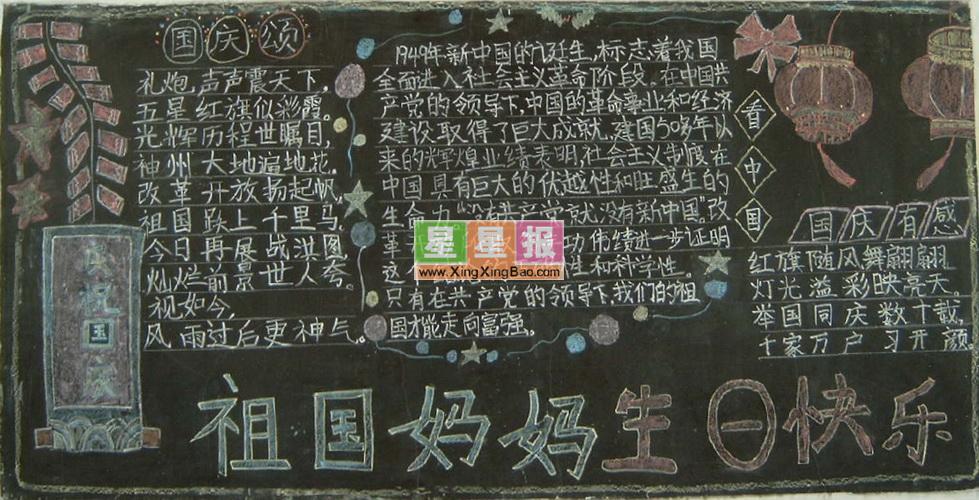 国庆颂
礼炮声声震天下
五星红旗似彩霞。
光辉历程世瞩目,
神州大地遍地花。
改革开放扬起帆,
祖国跃上千里马
今日再展战淇图
灿烂前景世人夸。
视如今,
风雨过后更神气。
庆祝国庆
1949年新中国的诞生,标志着我国
全面进入社会主义革命阶段,在中国共
产党的领导下,中国的革命事业和经济
建设取得了巨大成就。建国50多年以
来的辉煌业绩表明,社会主义制度在
中国具有巨大的优越性和旺盛生的
生命力"没有共产党就没有新中国"改
革
功伟绩进一步证明
性和科学性。
只有在共产党的领导下,我们的祖
国才能走向富强。
看中国
国庆有感
红旗随风舞翩翩
灯光溢彩映亮天
举国同庆数十载,
千家万户习开颜
星星报
www.XingXingBao.com
祖国妈妈生日快乐